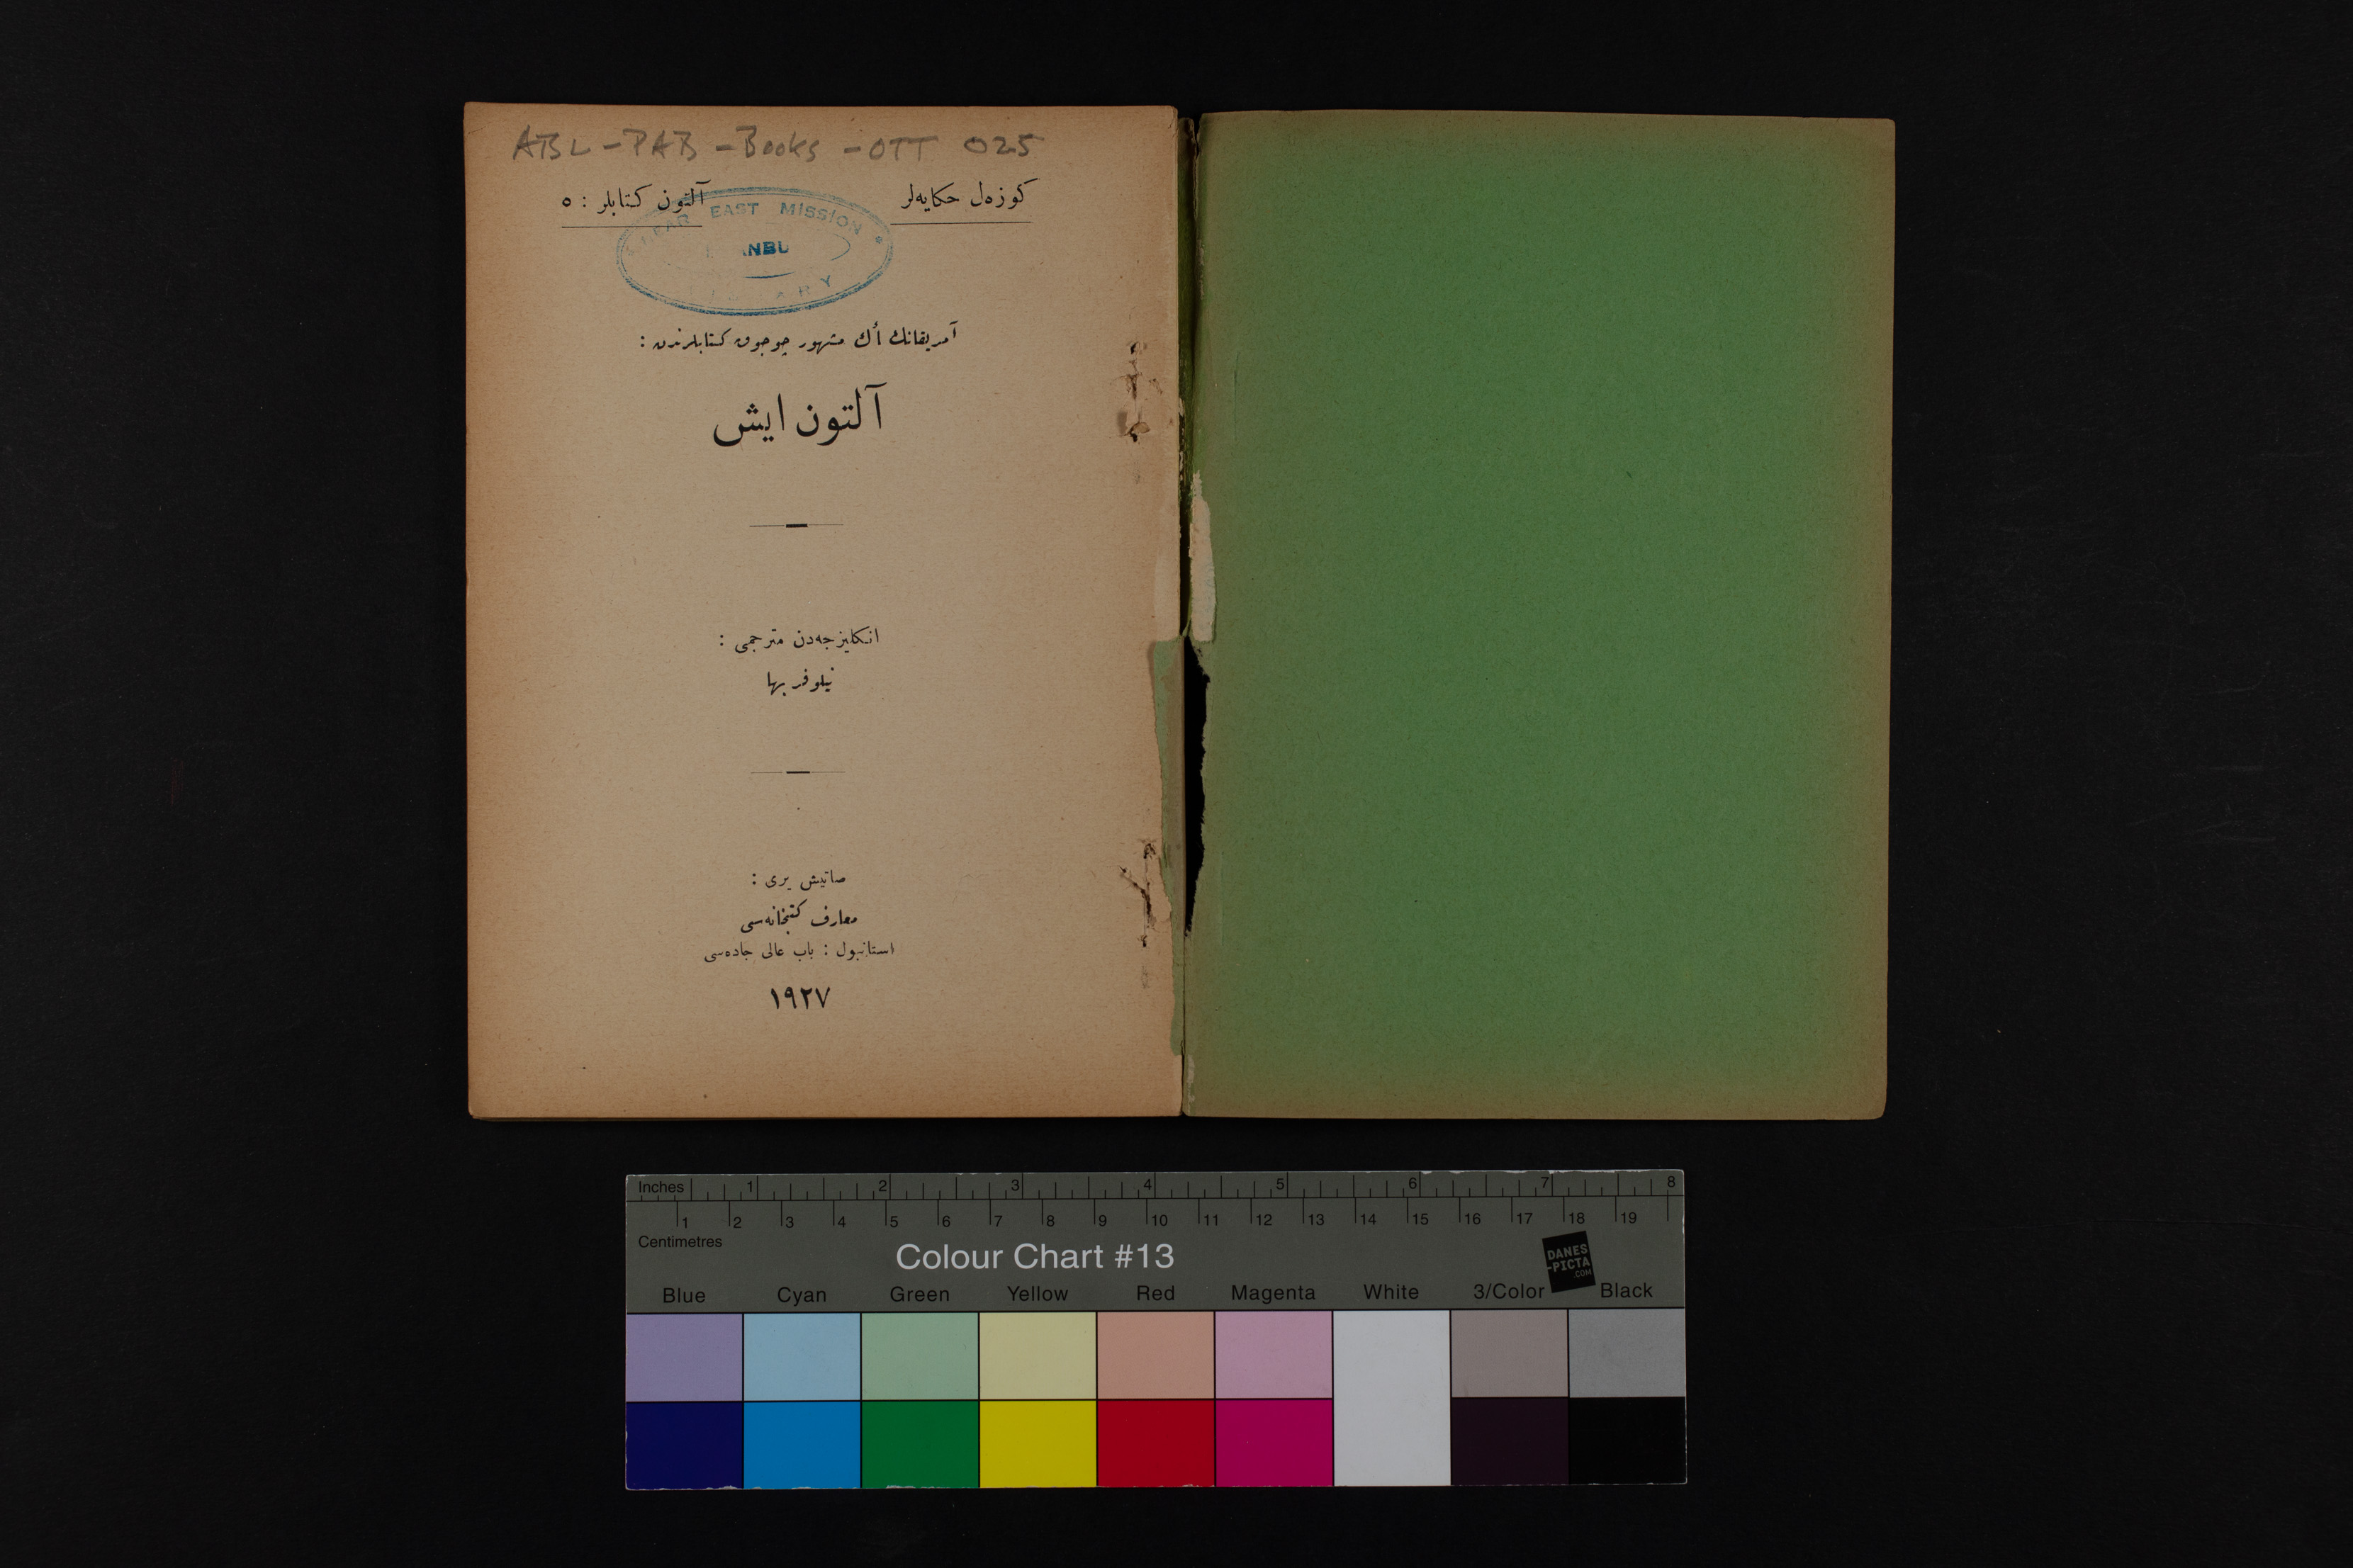 ABL-PAB-Books-OTT 025
كوزەل حكايەلر
آلتون كتابلر : ٥
EAST MISSION
آمريقانك أك مشهور چوجوق كتابلرندن :
آلتون ايش
انكليزجەدن مترجمى :
نيلوفر بها
صاتيش يرى :
معارف كتبخانەسى
استانبول : باب عالى جادەسى
١٩٢٧
Inches 1 2 3 4 5 6 7 8
1 2 3 4 5 6 7 8 9 10 11 12 13 14 15 16 17 18 19
Centimetres
Colour Chart #13
DANES
-PICTA
.COM
Blue Cyan Green Yellow Red Magenta White 3/Color Black